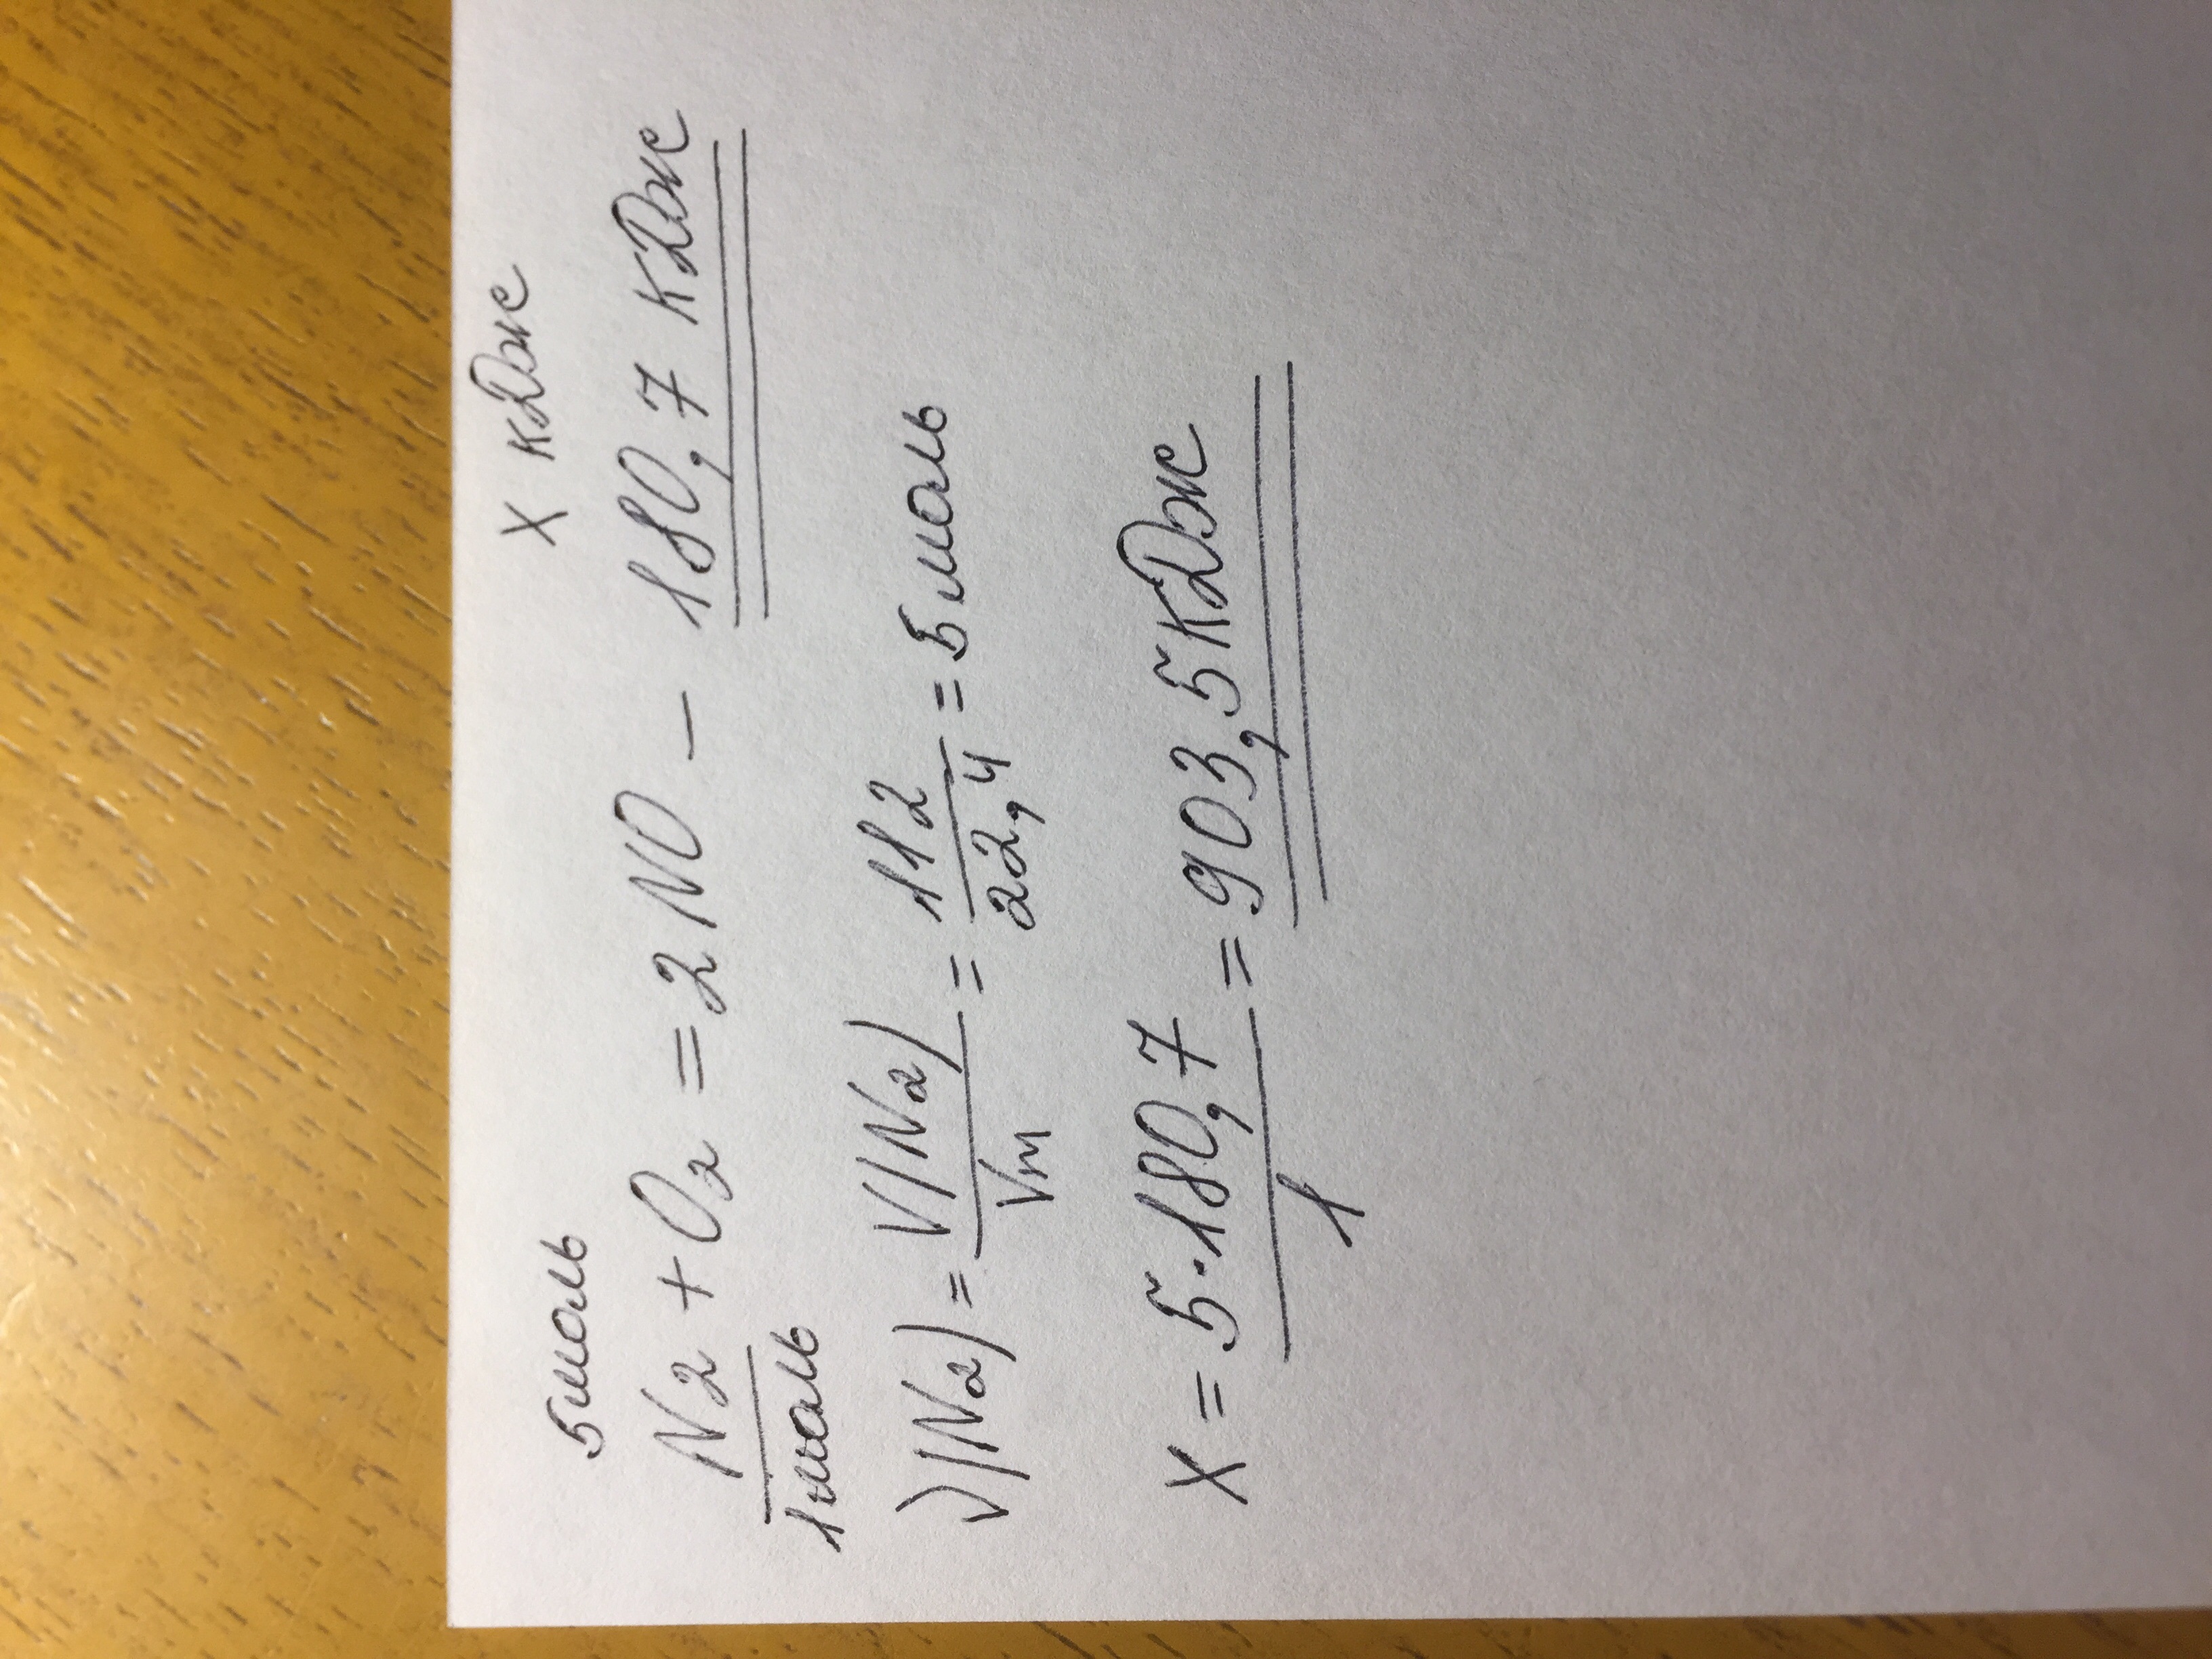 5моль X кДж
N2 + O2 = 2NO – 180,7 кДж
1моль
ν(N2) = V(N2)/Vm = 112/22,4 = 5моль
X = 5·180,7/1 = 903,5кДж